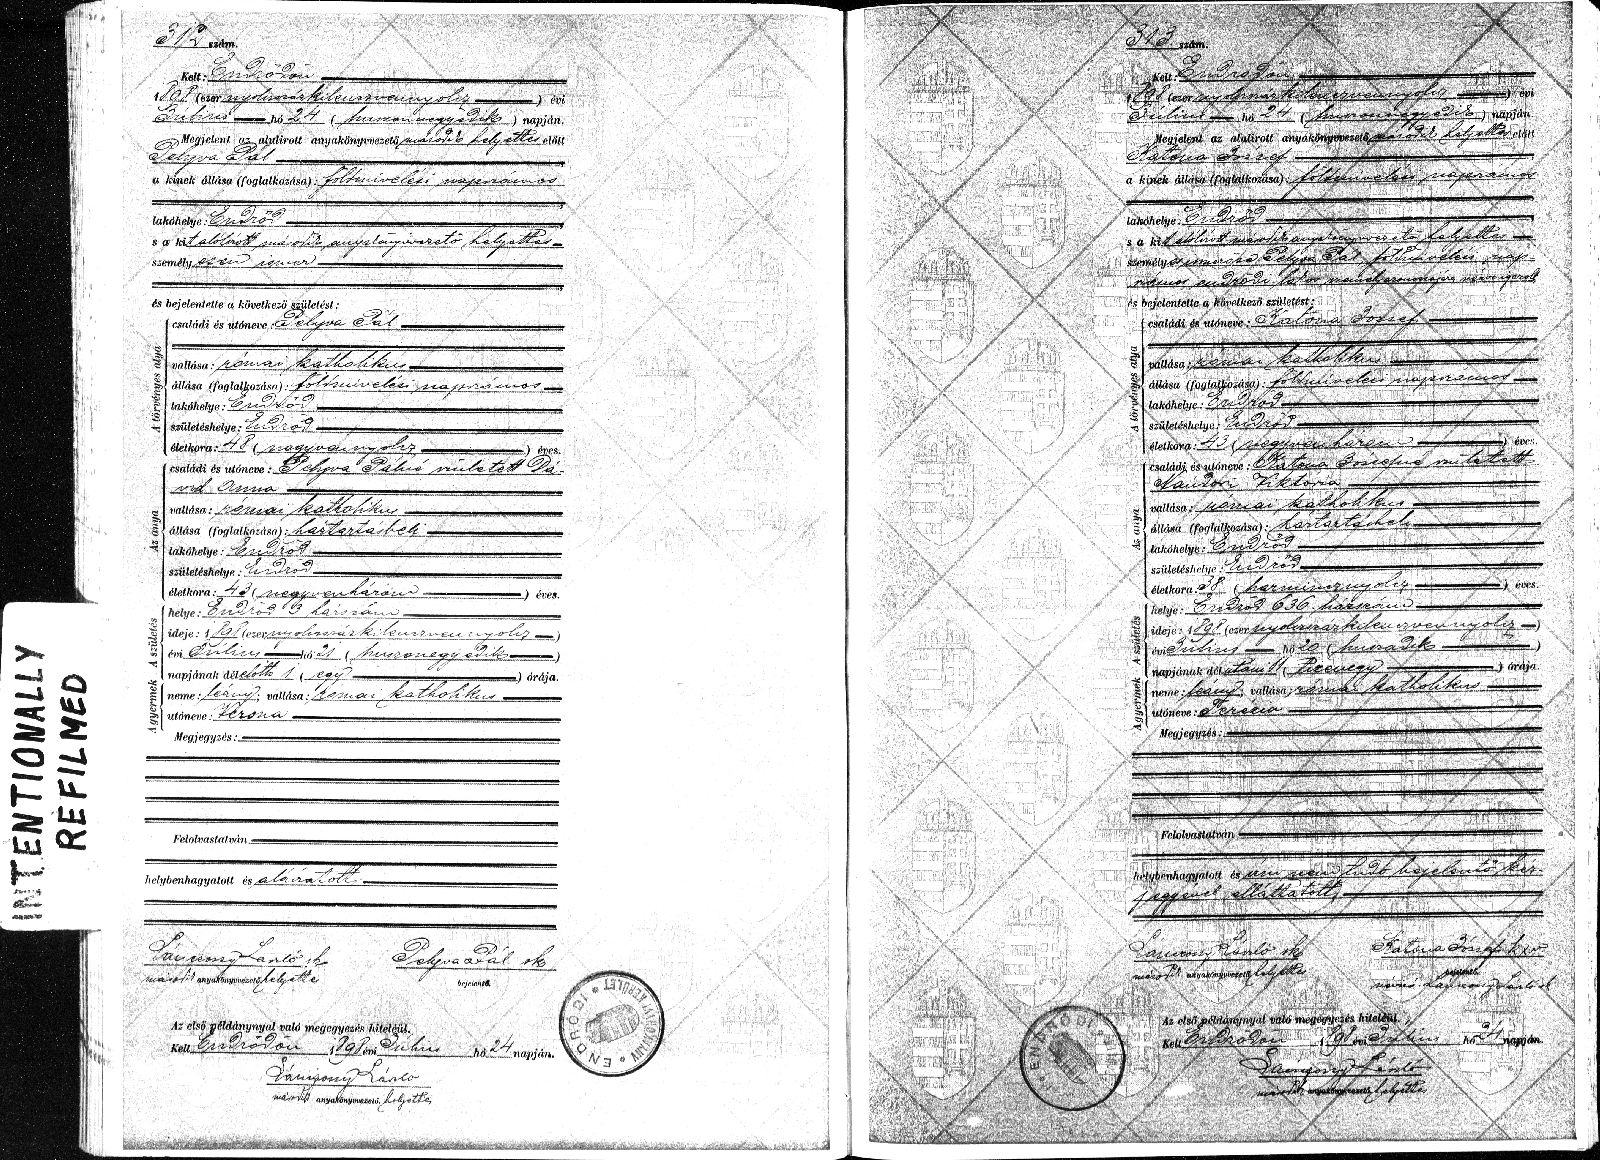 INTENTIONALLY
REFILMED
312 szám.
Kelt: Endrődön
1898 (ezer nyolcszázkilencvennyolcz) évi
Julius hó 24 (huszonnegyedik) napján.
Megjelent az alulirott anyakönyvvezető második helyettes előtt
Pelyva Pál
a kinek állása (foglalkozása): földmivelési napszámos
lakóhelye: Endrőd
s a kit alólirott második anyakönyvvezető helyettes
személyesen ismer
és bejelentette a következő születést:
A törvényes atya
családi és utóneve: Pelyva Pál
vallása: római katholikus
állása (foglalkozása): földmivelési napszámos
lakóhelye: Endrőd
születéshelye: Endrőd
életkora: 48 (negyvennyolcz) éves.
Az anya
családi és utóneve: Pelyva Pálné született Dá-
vid Anna
vallása: római katholikus
állása (foglalkozása): háztartásbeli
lakóhelye: Endrőd
születéshelye: Endrőd
életkora: 43 (negyvenhárom) éves.
A gyermek A születés
helye: Endrőd 9 házszám
ideje: 1898 (ezer nyolcszázkilencvennyolcz)
évi Julius hó 21 (huszonegyedik)
napjának délelőtt 1 (egy) órája.
neme: leány; vallása: római katholikus
utóneve: Verona
Megjegyzés:
Felolvastatván
helybenhagyatott és aláiratott
László sk Pelyva Pál sk
második anyakönyvvezető helyettes bejelentő.
Az első példánynyal való megegyezés hiteléül.
Kelt Endrődön 1898 évi Julius hó 24 napján.
László
második anyakönyvvezető. helyettes
ENDRŐDI ANYAKÖNYVI KERÜLET
313 szám.
Kelt: Endrődön
1898 (ezer nyolcszázkilencvennyolcz) évi
Julius hó 24 (huszonnegyedik) napján
Megjelent az alulirott anyakönyvvezető második helyettes előtt
Katona József
a kinek állása (foglalkozása): földmivelési napszámos
lakóhelye: Endrőd
s a kit alólirott második anyakönyvvezető helyettes
személy Pelyva Pál földmivelési nap-
számos endrődi lakos
és bejelentette a következő születést:
A törvényes atya
családi és utóneve: Katona József
vallása: római katholikus
állása (foglalkozása): földmivelési napszámos
lakóhelye: Endrőd
születéshelye: Endrőd
életkora: 43 (negyvenhárom) éves.
Az anya
családi és utóneve: Katona Józsefné született
Viktoria
vallása: római katholikus
állása (foglalkozása): háztartásbeli
lakóhelye: Endrőd
születéshelye: Endrőd
életkora: 38 (harmincznyolcz) éves.
A gyermek A születés
helye: Endrőd 636 házszám
ideje: 1898 (ezer nyolcszázkilencvennyolcz)
évi Julius hó 20 (huszadik)
napjának délután 11 (tizenegy) órája.
neme: leány; vallása: római katholikus
utóneve: Terézia
Megjegyzés:
Felolvastatván
helybenhagyatott és irni nem tudó bejelentő kéz-
jegyével elláttatott
László sk Katona József kxv
második anyakönyvvezető helyettes bejelentő.
László sk
Az első példánynyal való megegyezés hiteléül.
Kelt Endrődön 1898 évi Julius hó napján.
László
második anyakönyvvezető. helyettes